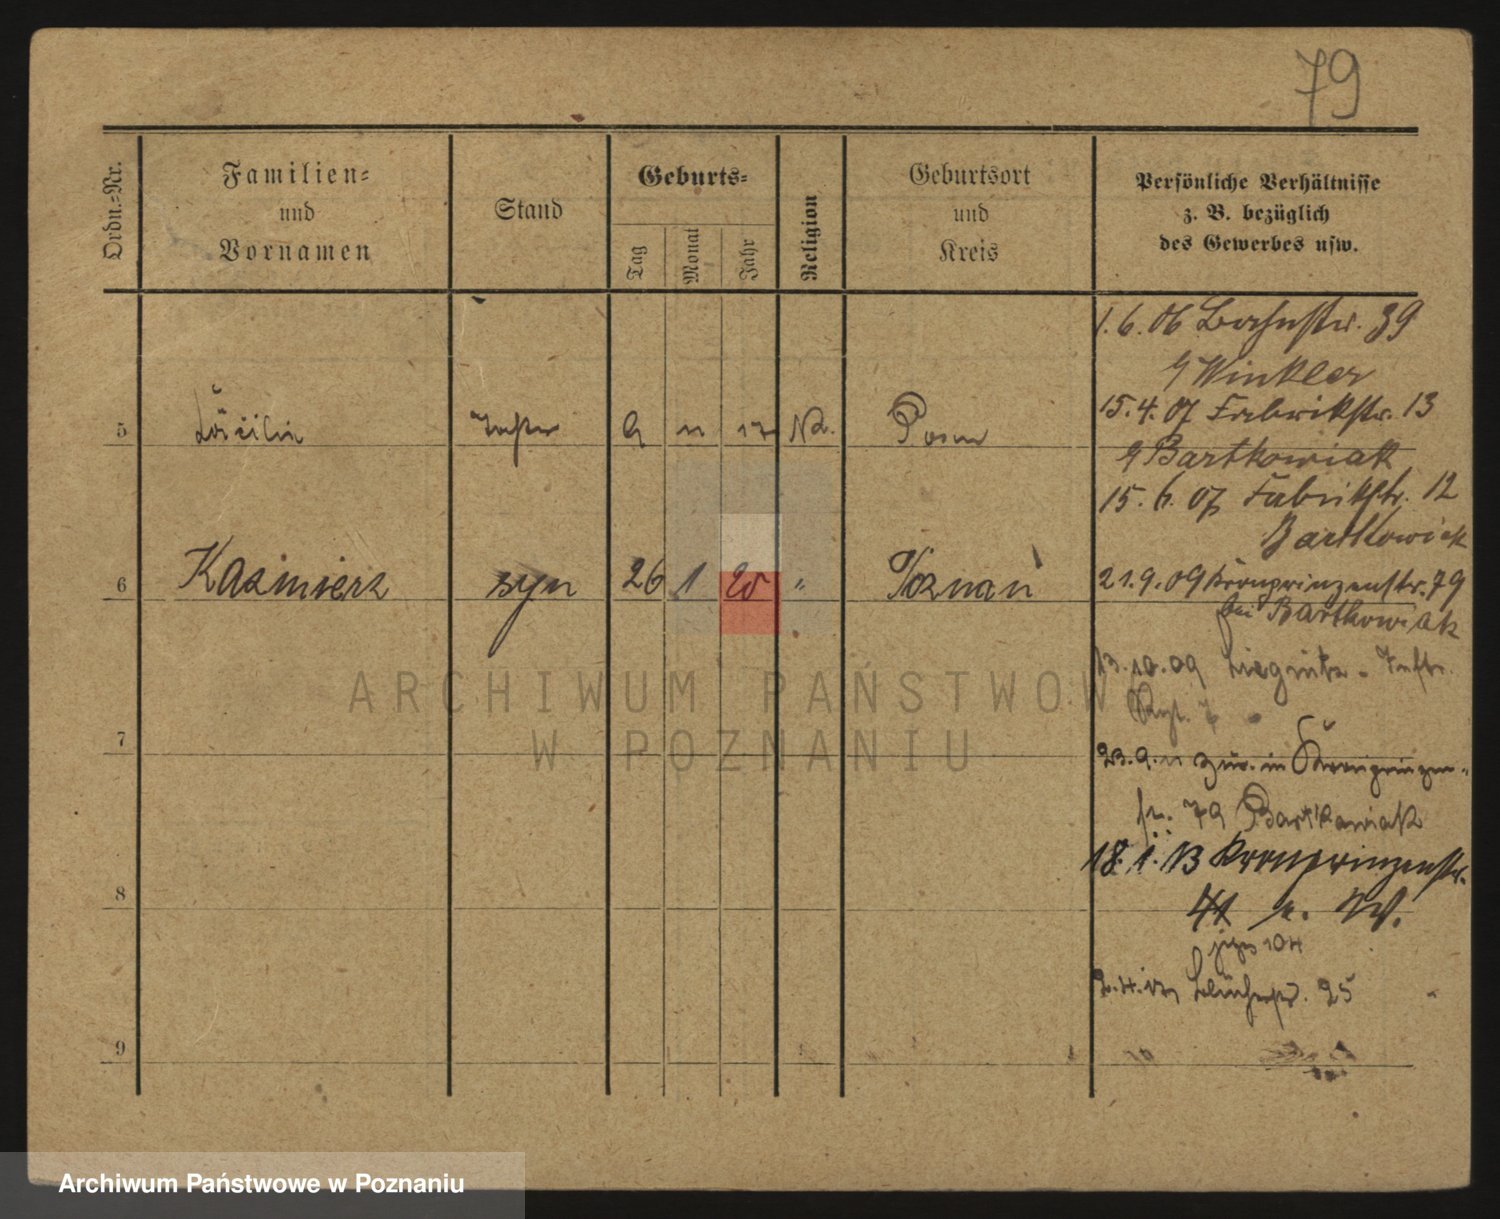 79
Ordn.-Nr.
Familien-
und
Vornamen
Stand
Geburts-
Tag
Monat
Jahr
Religion
Geburtsort
und
Kreis
Persönliche Verhältnisse
z. B. bezüglich
des Gewerbes usw.
1.6.06 Bahnstr. 39
Winkler
15.4.07 Fabrikstr. 13
5 Cäcilie 9 11 17 Posen
Bartkowiak
15.6.07 Fabrikstr. 12
Bartkowiak
6 Kazimierz syn 26 1 20 " Poznań
21.9.09 Kronprinzenstr. 79
bei Bartkowiak
13.10.09 Liegnitz - Inftr.
Rgt. 7
7
23.9.11 zur. in Kronprinzen-
str. 79 Bartkowiak
18.1.13 Kronprinzenstr.
8
41
jetzt 104
25
9
ARCHIWUM PAŃSTWOW
W POZNANIU
Archiwum Państwowe w Poznaniu